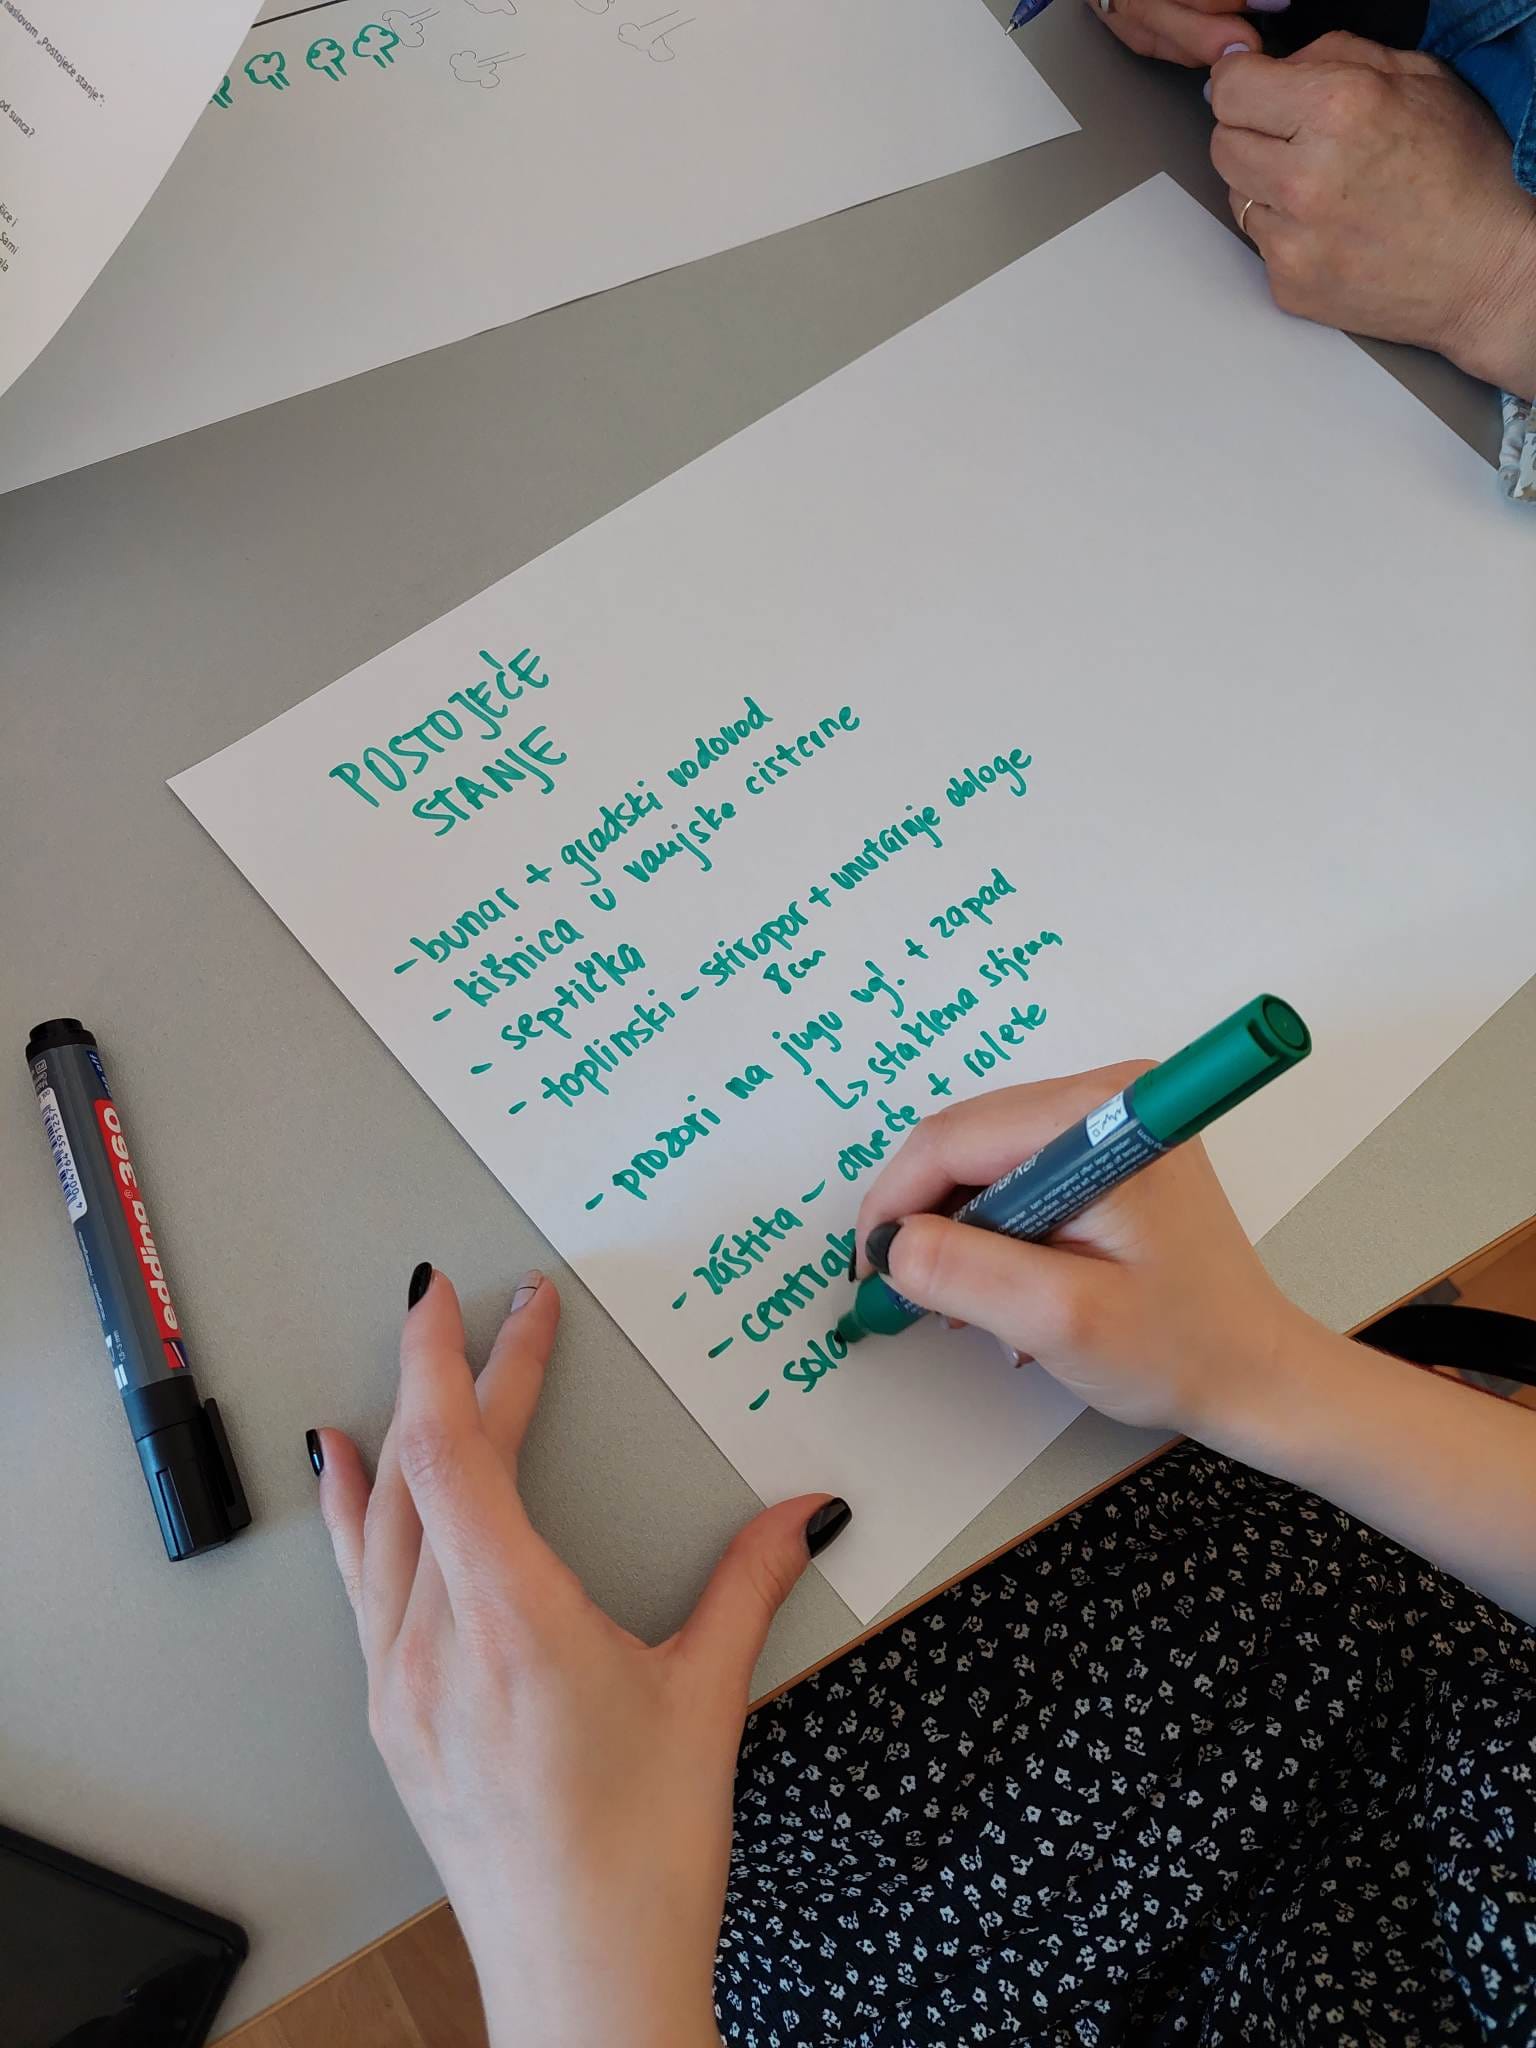 naslovom „Postojeće stanje“:
od sunca?
i
Sami
POSTOJEĆE
STANJE
- bunar + gradski vodovod
- kišnica u vanjske cisterne
- septička
- toplinski - stiropor + unutarnje obloge
8cm
- prozori na jugu ugl. + zapad
↳ staklena stjena
- zaštita - drveće + rolete
- central
- sola
edding® 360
4 004764 391257